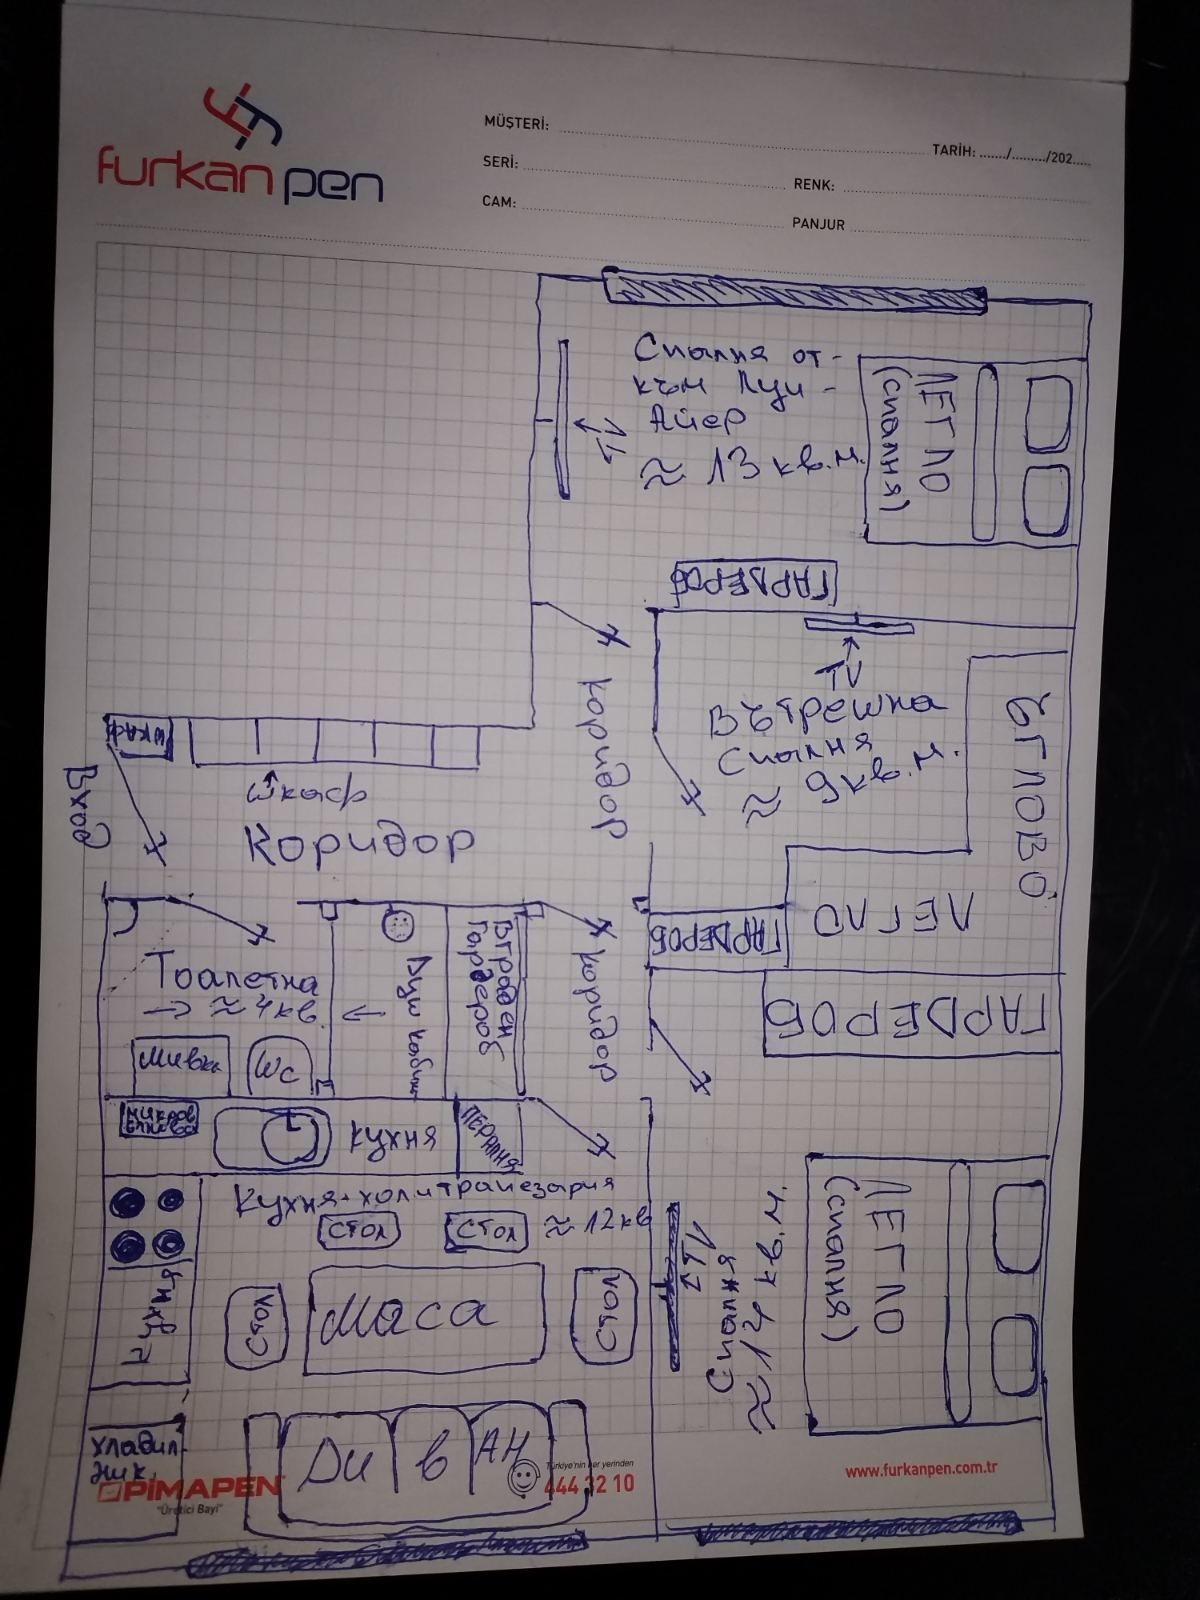 furkan pen
MÜŞTERİ:
TARİH: ....../........./202.....
SERİ:
RENK:
CAM:
PANJUR
Спалня от-
към Луи-
Айер
≈ 13 кв.м.
TV
ЛЕГЛО
(спалня)
ГАРДЕРОБ
TV
Вътрешна
Спалня
≈ 9 кв.м.
ЪГЛОВО
ЛЕГЛО
ГАРДЕРОБ
ГАРДЕРОБ
коридор
шкаф
Вход
шкаф
Коридор
Тоалетна
≈ 4 кв.
Мивка
WC
Душ кабина
Вграден
Гардероб
коридор
микров
ълнова
кухня
ПЕРАЛНЯ
Кухня+хол и трапезария
≈ 12 кв
СТОЛ
СТОЛ
СТОЛ
Маса
СТОЛ
кухня
хладил-
ник
Ди в АН
TV
Спалня
≈ 14 кв.м.
ЛЕГЛО
(спалня)
PİMAPEN
"Üretici Bayi"
Türkiye'nin her yerinden
444 32 10
www.furkanpen.com.tr